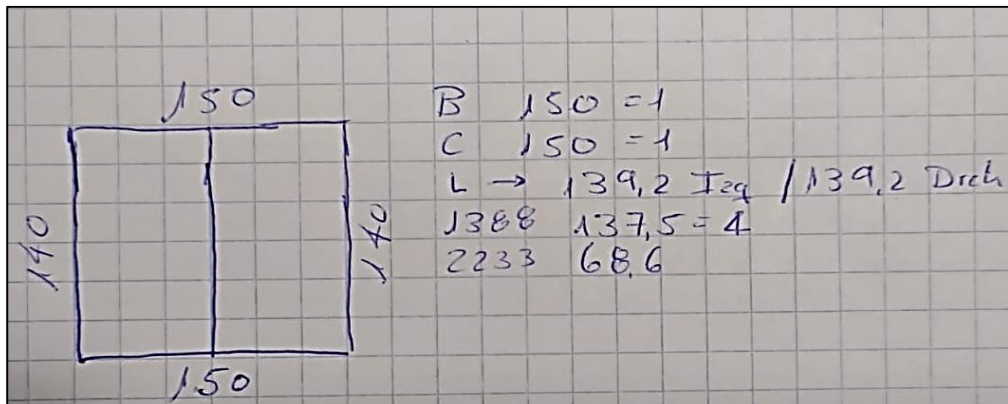 150
140
140
150
B 150 = 1
C 150 = 1
L → 139,2 Izq / 139,2 Drch
1388 137,5 = 4
2233 68,6